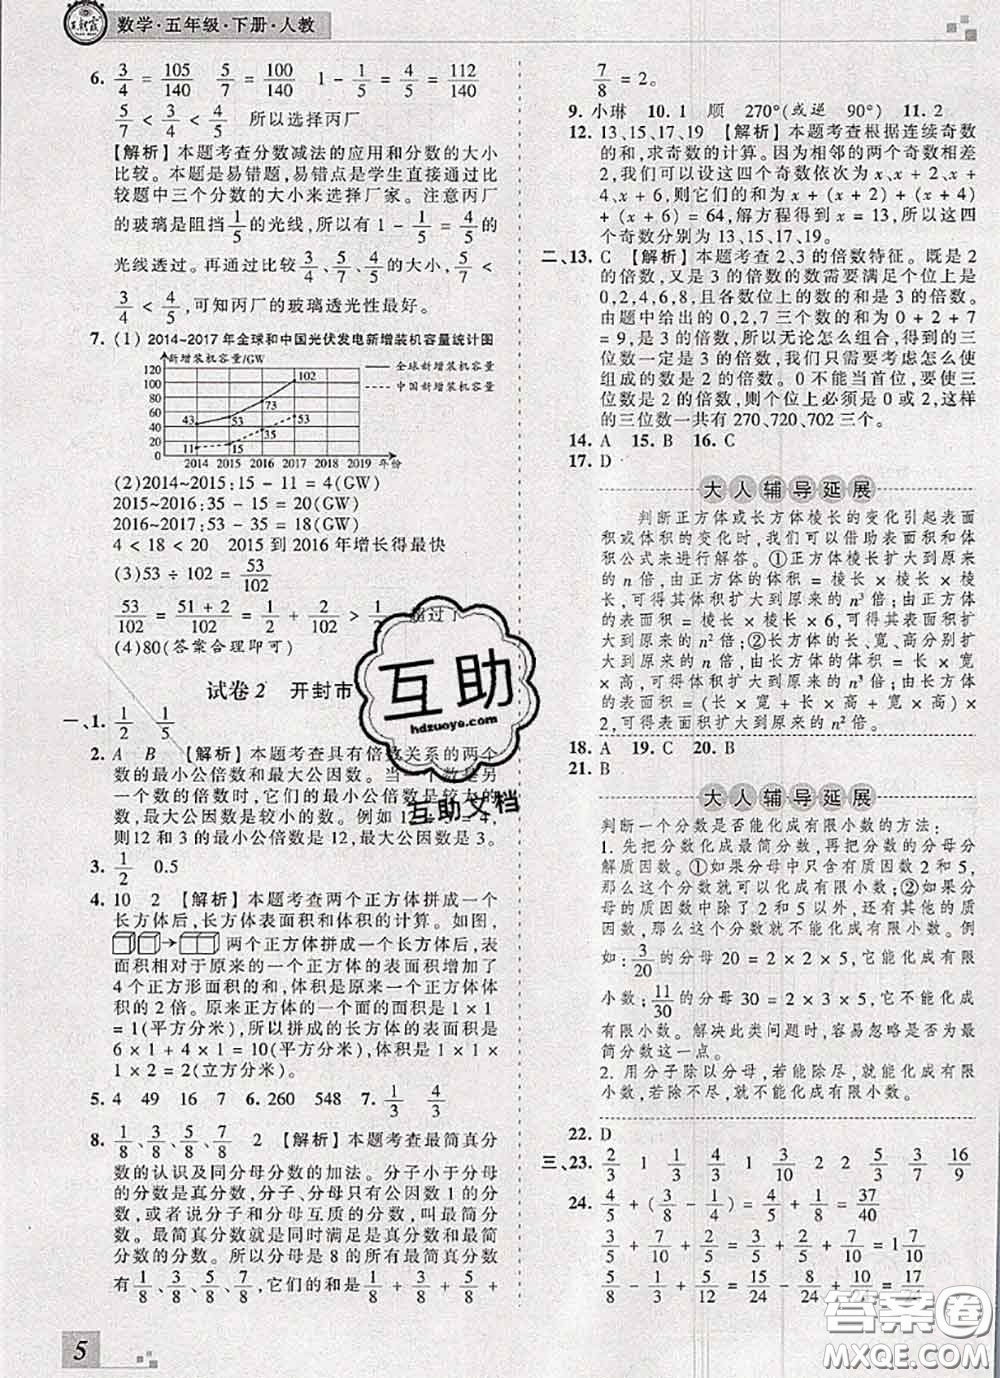 数学·五年级·下册·人教
6. 3/4 = 105/140 5/7 = 100/140 1 - 1/5 = 4/5 = 112/140
5/7 < 3/4 < 4/5 所以选择丙厂
【解析】本题考查分数减法的应用和分数的大小
比较。本题是易错题,易错点是学生直接通过比
较题中三个分数的大小来选择厂家。注意丙厂
的玻璃是阻挡1/5的光线,所以有1 - 1/5 = 4/5的
光线透过。再通过比较3/4、5/7、4/5的大小,5/7 <
3/4 < 4/5,可知丙厂的玻璃透光性最好。
7. (1) 2014~2017年全球和中国光伏发电新增装机容量统计图
新增装机容量/GW
全球新增装机容量
中国新增装机容量
120
100
80
60
40
20
0
43 53 73 102
11 15 35 53
2014 2015 2016 2017 2018 2019 年份
(2)2014~2015:15 - 11 = 4(GW)
2015~2016:35 - 15 = 20(GW)
2016~2017:53 - 35 = 18(GW)
4 < 18 < 20 2015到2016年增长得最快
(3)53 ÷ 102 = 53/102
53/102 = (51 + 2)/102 = 1/2 + 2/102 > 超过了
(4)80(答案合理即可)
试卷2 开封市
一、1. 1/2 1/5
2. A B 【解析】本题考查具有倍数关系的两个
数的最小公倍数和最大公因数。当一个数是另
一个数的倍数时,它们的最小公倍数是较大的
数,最大公因数是较小的数。例如12 ÷ 3 = 4,
则12和3的最小公倍数是12,最大公因数是3。
3. 1/2 0.5
4. 10 2 【解析】本题考查两个正方体拼成一个
长方体后,长方体表面积和体积的计算。如图,
两个正方体拼成一个长方体后,表
面积相对于原来的一个正方体的表面积增加了
4个正方形面积的和,体积是原来一个正方体体
积的2倍。原正方体的一个面的面积为1 × 1
= 1(平方分米),所以拼成的长方体的表面积是
6 × 1 + 4 × 1 = 10(平方分米),体积是1 × 1 ×
1 × 2 = 2(立方分米)。
5. 4 49 16 7 6. 260 548 7. 1/3 4/3
8. 1/8、3/8、5/8、7/8 2 【解析】本题考查最简真分
数的认识及同分母分数的加法。分子小于分母
的分数是真分数,分子、分母只有公因数1的分
数,或者说分子和分母互质的分数,叫最简分
数。最简真分数就是同时满足是真分数和最简
分数的分数。所以分母是8的所有最简真分数
有1/8、3/8、5/8、7/8,它们的和是1/8 + 3/8 + 5/8 +
7/8 = 2。
9. 小琳 10. 1 顺 270°(或逆 90°) 11. 2
12. 13、15、17、19 【解析】本题考查根据连续奇数
的和,求奇数的计算。因为相邻的两个奇数相差
2,我们可以设这四个奇数依次为x、x + 2、x +
4、x + 6,则它们的和为x + (x + 2) + (x + 4)
+ (x + 6) = 64,解方程得到x = 13,所以这四
个奇数分别为13、15、17、19。
二、13. C 【解析】本题考查2、3的倍数特征。既是2
的倍数,又是3的倍数的数需要满足个位上是
0,2,4,6,8,且各数位上的数的和是3的倍数。
由题中给出的0,2,7三个数的和为0 + 2 + 7
= 9,是3的倍数,所以无论怎么组合,得到的三
位数一定是3的倍数,我们只需要考虑怎么使
组成的数是2的倍数。0不能当首位,要使三
位数是2的倍数,则个位上必须是0或2,这样
的三位数一共有270,720,702三个。
14. A 15. B 16. C
17. D
大人辅导延展
判断正方体或长方体棱长的变化引起表面
积或体积的变化时,我们可以借助表面积和体
积公式来进行解答。①正方体棱长扩大到原来
的n倍,由正方体的体积 = 棱长 × 棱长 × 棱长,
可得其体积扩大到原来的n³倍;由正方体的表
面积 = 棱长 × 棱长 × 6,可得其表面积扩大
到原来的n²倍;②长方体的长、宽、高分别扩
大到原来的n倍,由长方体的体积 = 长 × 宽
× 高,可得其体积扩大到原来的n³倍,由长方
体的表面积 = (长 × 宽 + 长 × 高 + 宽 × 高) ×
2,可得表面积扩大到原来的n²倍。
18. A 19. C 20. B
21. B
大人辅导延展
判断一个分数是否能化成有限小数的方法:
1. 先把分数化成最简分数,再把分数的分母分
解质因数。①如果分母中只含有质因数2和5,
那么这个分数就可以化成有限小数;②如果分
母中除了2和5以外,还含有其他的质
因数,那么这个分数就不能化成有限小数。例
如:3/20的分母20 = 2 × 2 × 5,它能化成有限
小数;11/30的分母30 = 2 × 3 × 5,它不能化成
有限小数。解决此类问题时,容易忽略是否为最
简分数这一点。
2. 用分子除以分母,若能除尽,则能化成有限
小数,若除不尽,就不能化成有限小数。
22. D
三、23. 2/3 1 1/3 4/3 1/4 2 2 5/3 3/7 16/9
24. 4/5 + (3/8 - 1/4) = 4/5 + 1/8 = 37/40
3/5 + 7/10 + 2/5 = 3/5 + 2/5 + 7/10 = 1 7/10
5/8 - 1/3 + 5/12 = 15/24 - 8/24 + 10/24 = 17/24
5
互助
hdzuoye.com
互助文档
答案圈
MXQE.COM